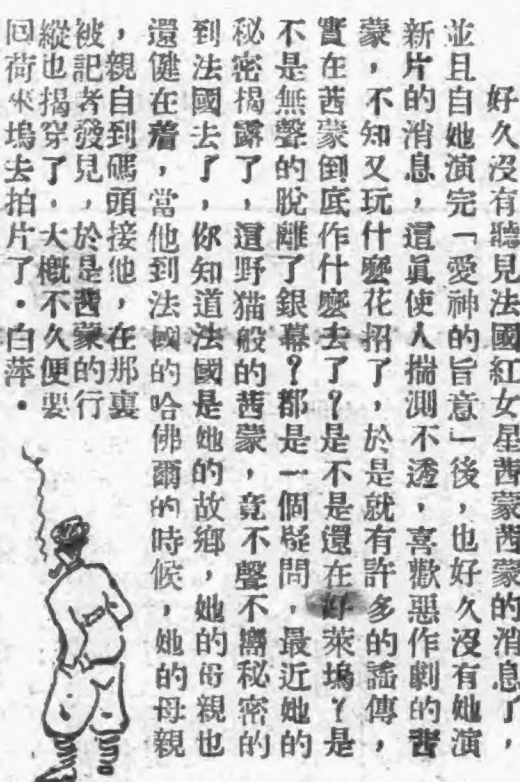 好久沒有聽見法國紅女星茜蒙茜蒙的消息了，
並且自她演完「愛神的旨意」後，也好久沒有她演
新片的消息，這眞使人揣測不透，喜歡惡作劇的茜
蒙，不知又玩什麼花招了，於是就有許多的謠傳，
實在茜蒙倒底作什麼去了？是不是還在好萊塢？是
不是無聲的脫離了銀幕？都是一個疑問，最近她的
秘密揭露了，這野猫般的茜蒙，竟不聲不嚮秘密的
到法國去了，你知道法國是她的故鄉，她的母親也
還健在着，當他到法國的哈佛爾的時候，她的母親
，親自到碼頭接他，在那裏
被記者發見，於是茜蒙的行
縱也揭穿了，大概不久便要
回荷來塢去拍片了・白萍・